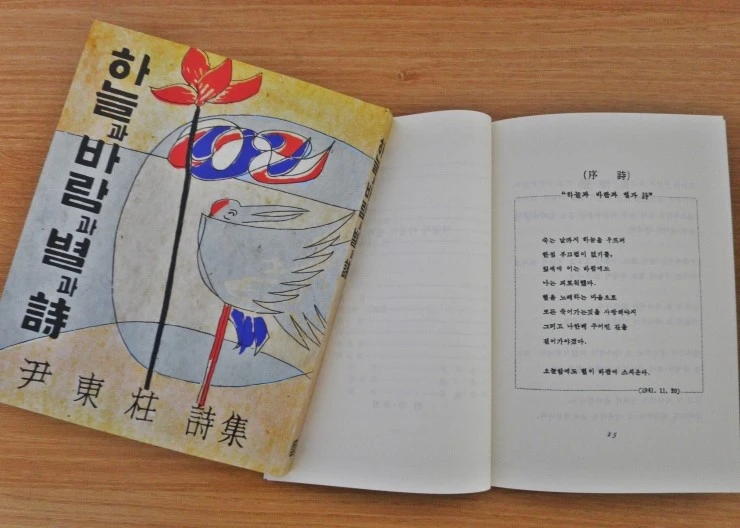 하늘과 바람과 별과 詩
尹東柱 詩集
(序 詩)
"하늘과 바람과 별과 詩"
죽는 날까지 하늘을 우르러
한점 부끄럼이 없기를,
잎새에 이는 바람에도
나는 괴로워했다.
별을 노래하는 마음으로
모든 죽어가는것을 사랑해야지
그리고 나한테 주어진 길을
걸어가야겠다.
오늘밤에도 별이 바람에 스치운다.
(1941. 11. 20)
25